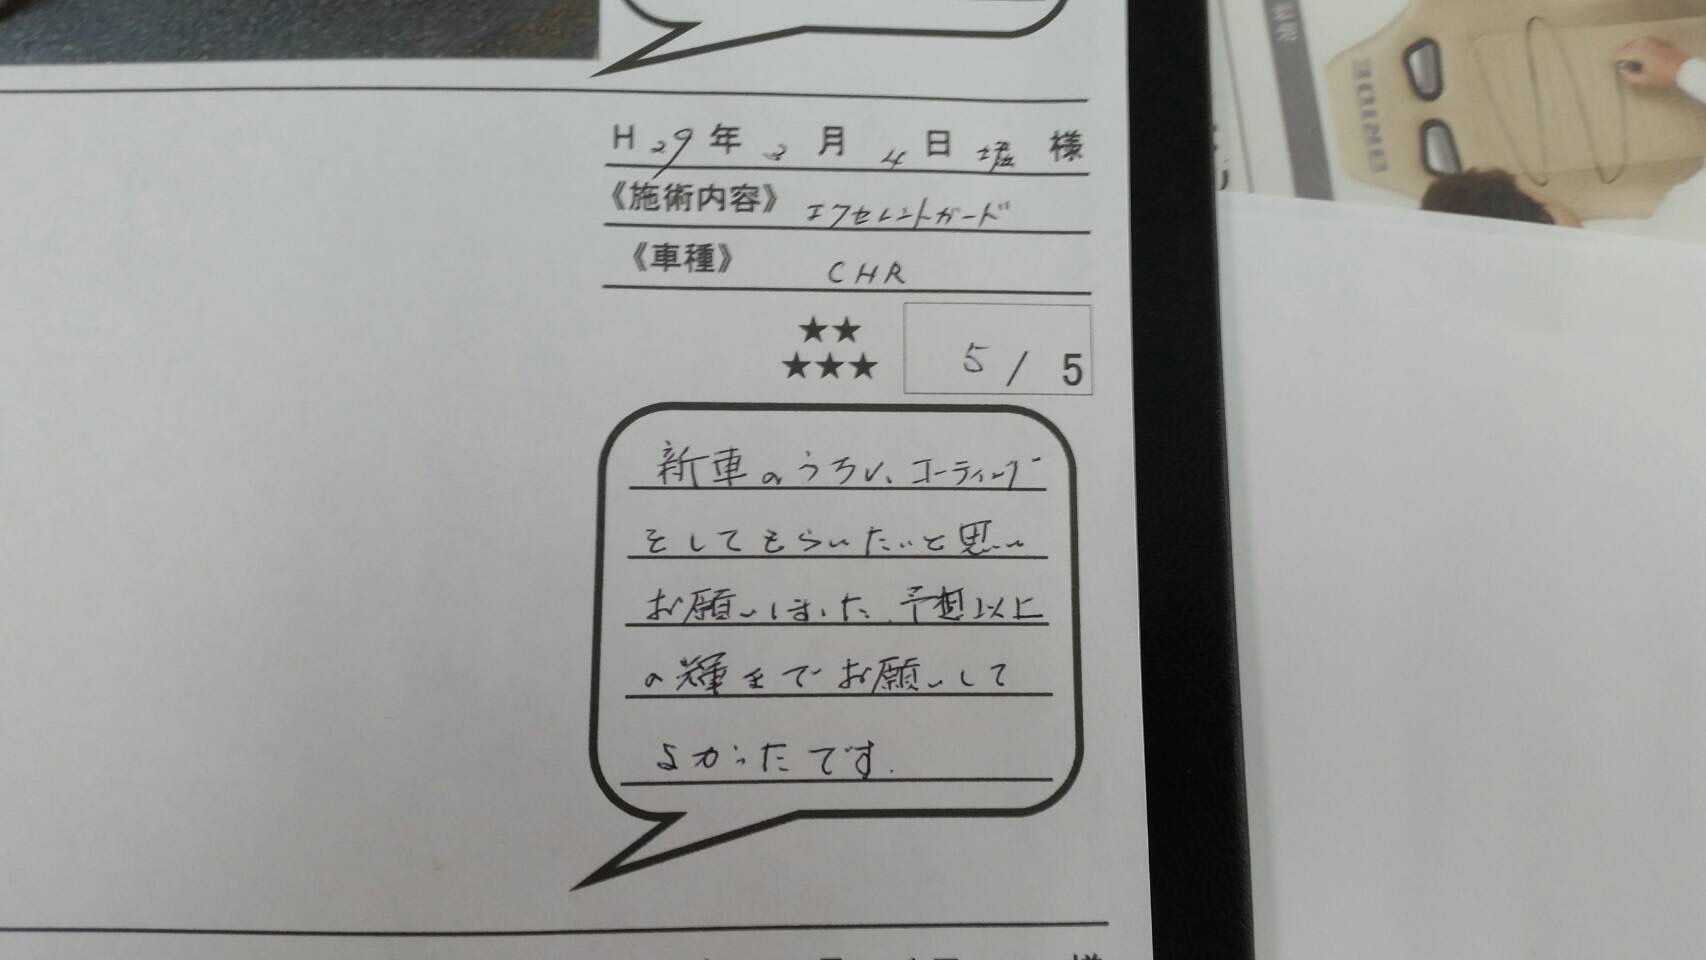 H29年3月4日 堀 様
《施術内容》 エクセレントガード
《車種》 CHR
★★
★★★ 5/5
新車のうちに、コーティング
をしてもらいたいと思い
お願いしました。予想以上
の輝きでお願いして
よかったです。